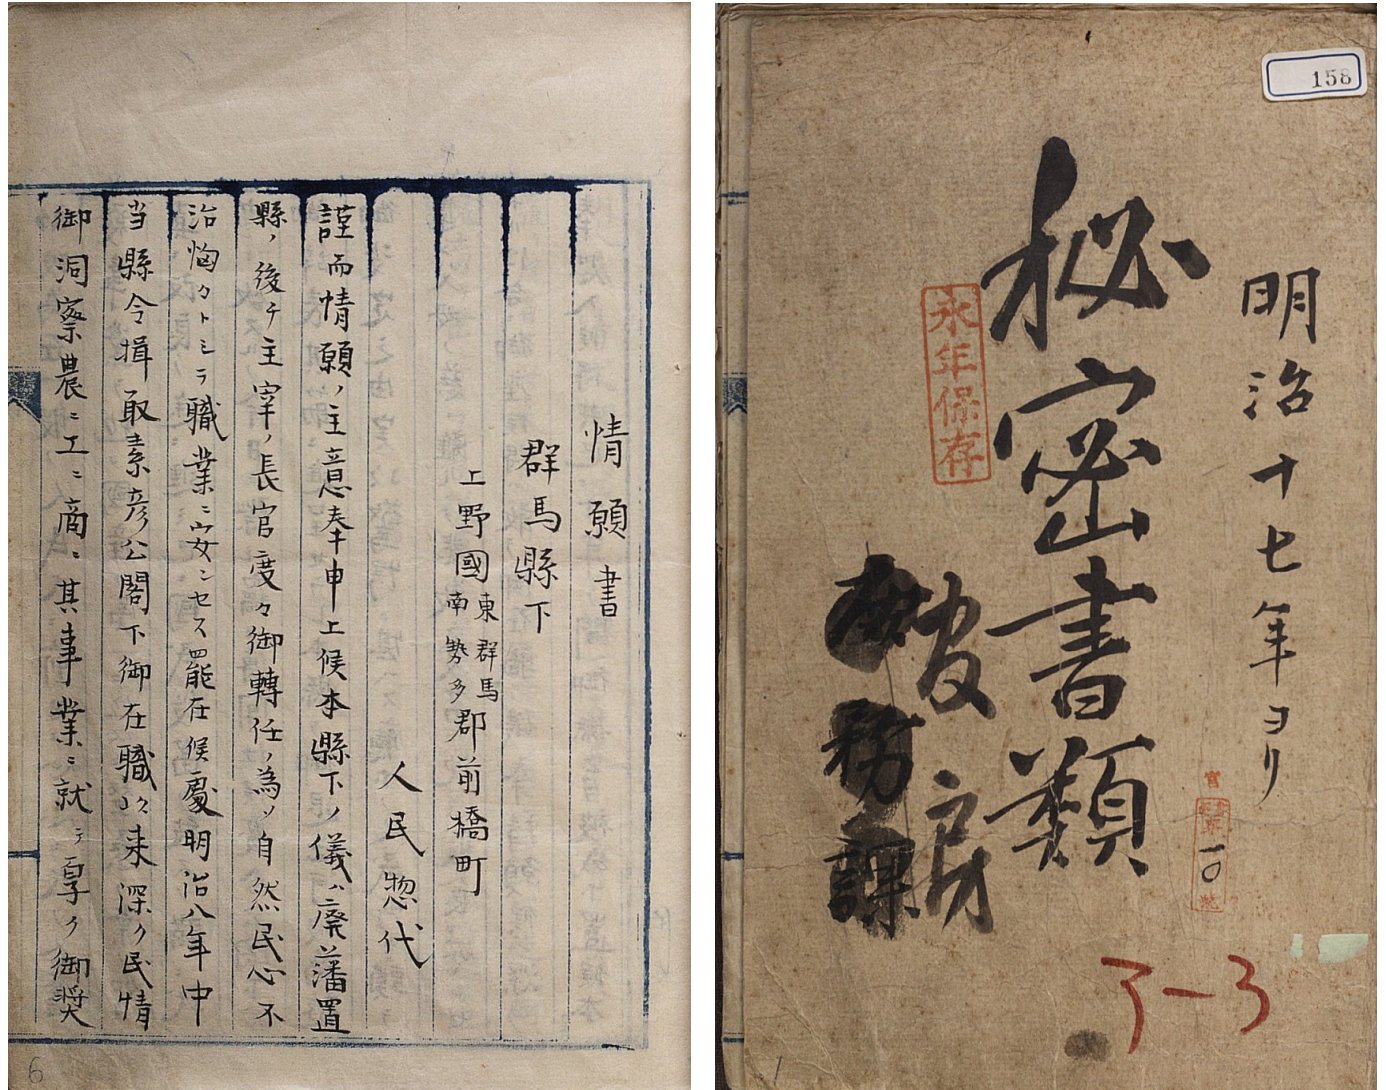 158
明治十七年ヨリ
秘密書類
永年保存
房
務課
ア-3
1
情願書
群馬縣下
上野國東群馬南勢多郡前橋町
人民惣代
謹而情願ノ主意奉申上候本縣下ノ儀ハ廃藩置
縣ノ後チ主宰ノ長官度々御轉任ノ為メ自然民心不
治恟々トシテ職業ニ安ンセス罷在候處明治八年中
当縣令揖取素彦公閣下御在職以来深ク民情
御洞察農ニ工ニ商ニ其事業ニ就テ厚ク御奨
6